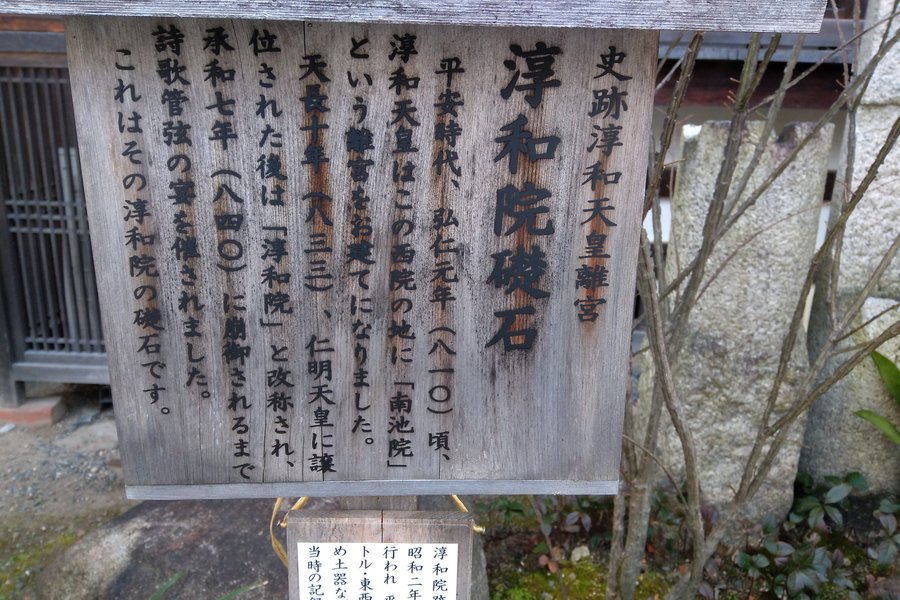 史跡淳和天皇離宮
淳和院礎石
平安時代、弘仁元年（八一〇）頃、
淳和天皇はこの西院の地に「南池院」
という離宮をお建てになりました。
天長十年（八三三）、仁明天皇に譲
位された後は「淳和院」と改称され、
承和七年（八四〇）に崩御されるまで
詩歌管弦の宴を催されました。
これはその淳和院の礎石です。
淳和院跡
昭和二年
行われ
トル・東西
め土器な
当時の記